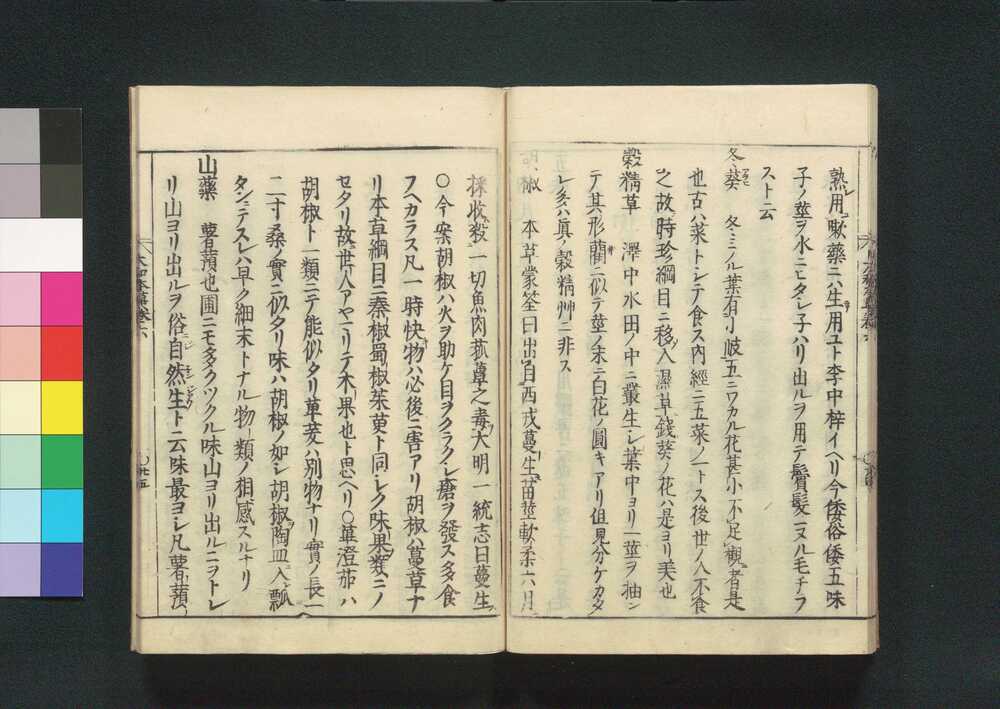 熟用嗽藥ニハ生用ユト李中梓イヘリ今倭俗倭五味
子ノ莖ヲ水ニヒタシ子ハリ出ルヲ用テ鬢髮ニヌル毛チフ
ストニ云
冬葵 冬ミノル葉有小岐五ニワカル花甚小不足観者是
也古ハ菜トシテ食ス内經ニ五菜ノ一トス後世ノ人不食
之故時珍綱目ニ移入濕草錢葵ノ花ハ是ヨリ美也
穀精草 澤中水田ノ中ニ叢生シ葉中ヨリ一莖ヲ抽ン
テ其形藺ニ似テ莖ノ末ニ白花ノ圓キアリ但見分ケカタ
レ多ハ眞ノ穀精艸ニ非ス
椒 本草蒙筌曰出自西戎蔓生苗莖軟柔六月
採收殺一切魚肉菰蕈之毒大明一統志曰蔓生
〇今案胡椒ハ火ヲ助ケ目ヲクラクシ瘡ヲ發ス多食
フヘカラス凡一時快物ハ必後ニ害アリ胡椒ハ蔓草ナ
リ本草綱目ニ秦椒蜀椒茱萸ト同シク味果類ニノ
セタリ故世人アヤマリテ木果也ト思ヘリ〇蓽澄茄ハ
胡椒ト一類ニテ能似タリ蓽茇ハ別物ナリ實ノ長一
二寸桑ノ實ニ似タリ味ハ胡椒ノ如シ胡椒陶皿ニ入瓢
タンニテスレハ早ク細末トナル物類ノ相感スルナリ
山藥 薯蕷也圃ニモ多クツクル味山ヨリ出ルニヲトレ
リ山ヨリ出ルヲ俗自然生ト云味最ヨシ凡薯蕷
大和本草卷之六